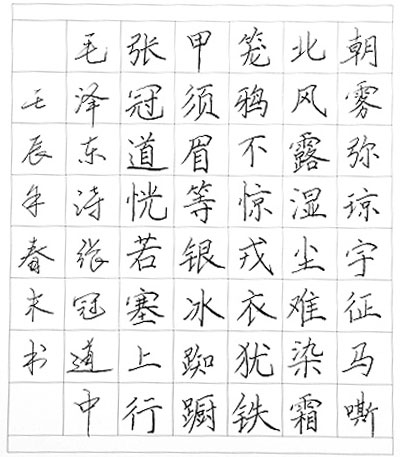 朝雾弥琼宇征马嘶
北风露湿尘难染霜
笼鸦不惊戎衣犹铁
甲须眉等银冰踟蹰
张冠道恍若塞上行
毛泽东诗张冠道中
壬辰年春末书